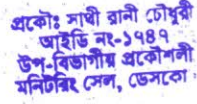 প্রকৌঃ সাথী রানী চৌধুরী
আইডি নং-১৭৪৭
উপ-বিভাগীয় প্রকৌশলী
মনিটরিং সেল, ডেসকো